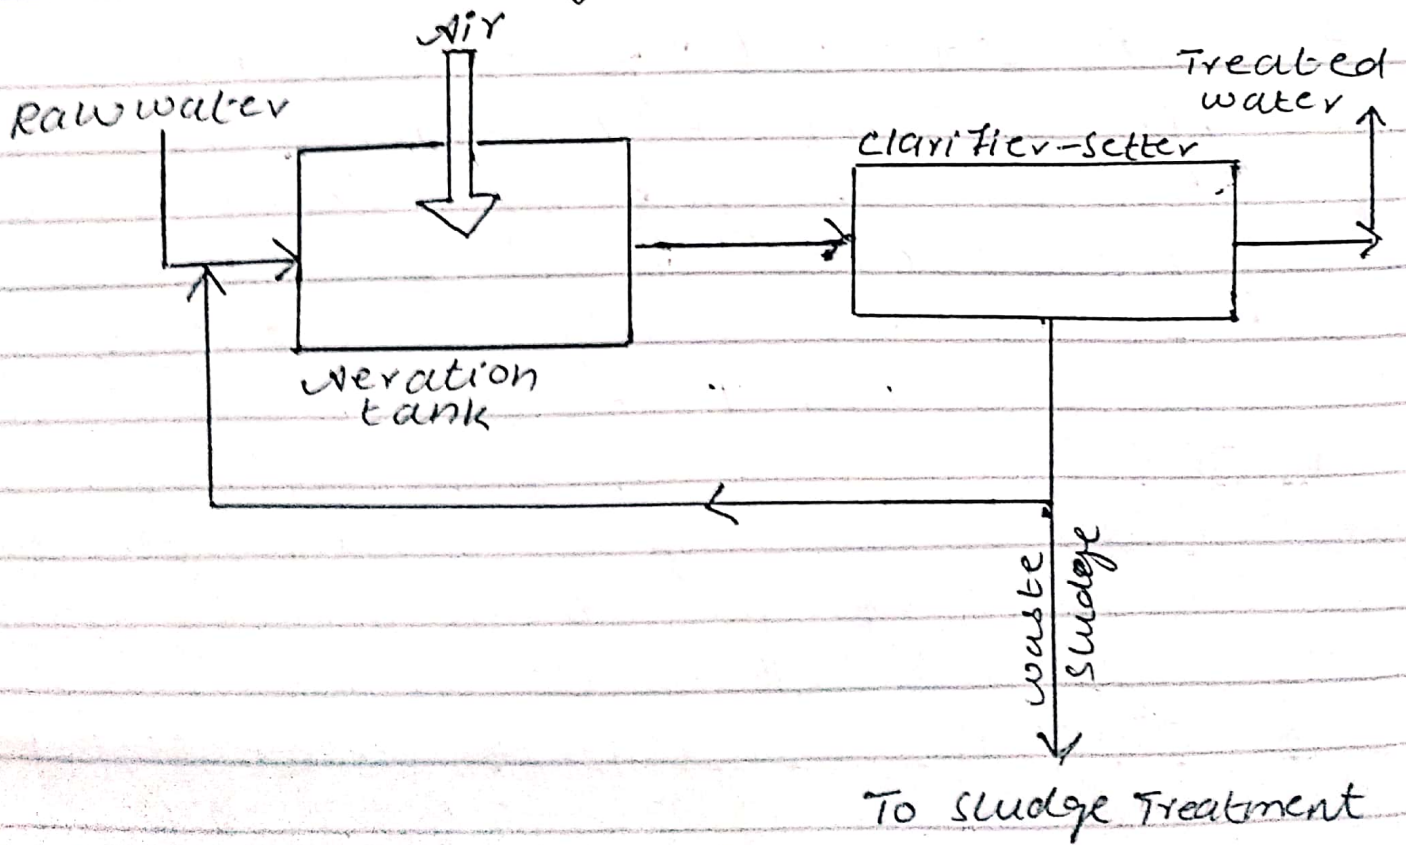 Air
Raw water
Treated
water
Clarifier-Setter
Aeration
tank
waste
Sludge
To Sludge Treatment